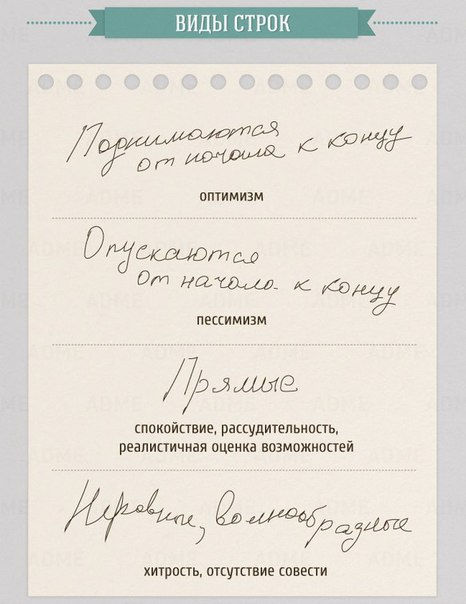 ВИДЫ СТРОК
Поднимаются
от начала к концу
оптимизм
Опускаются
от начала к концу
пессимизм
Прямые
спокойствие, рассудительность,
реалистичная оценка возможностей
Неровные, волнообразные
хитрость, отсутствие совести